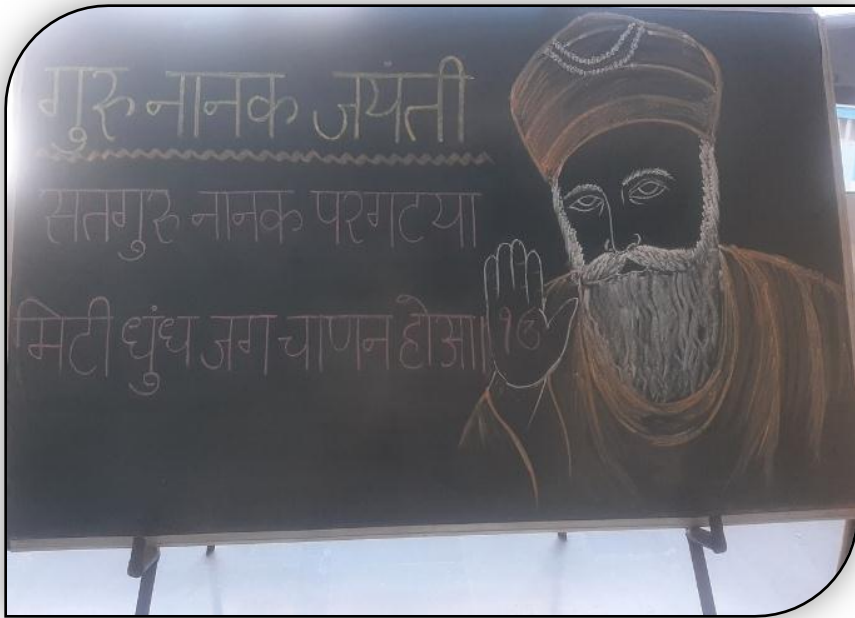 गुरु नानक जयंती
सतगुरु नानक परगटया
मिटी धुंध जग चाणन होआ॥